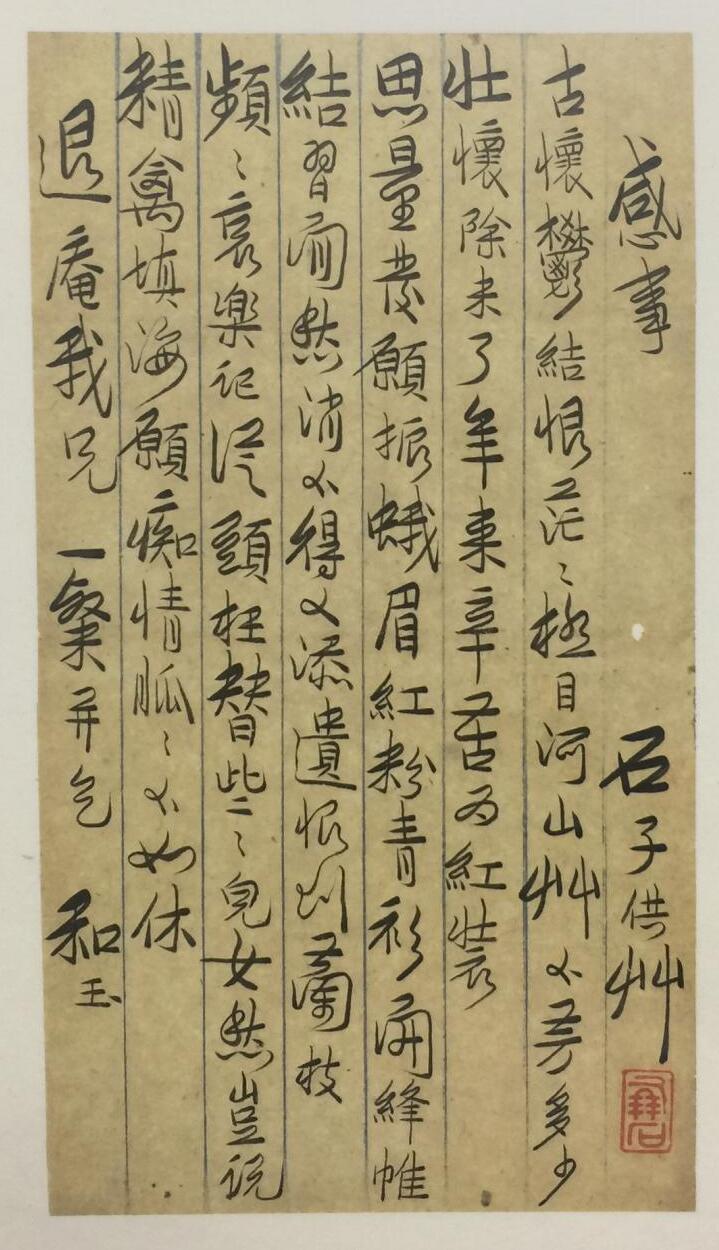 感事 石子供艸
古懷鬱結恨茫〻極目河山艸不芳多少
壯懷除未了年來辛苦為紅裝
思量發願振蛾眉紅粉青衫開絳帷
結習閒愁消不得又添遺恨刈蘭枝
頻〻哀樂記從頭枉替些〻兒女愁豈説
精禽填海願痴情脈〻不如休
退庵我兄 一粲并乞 和玉